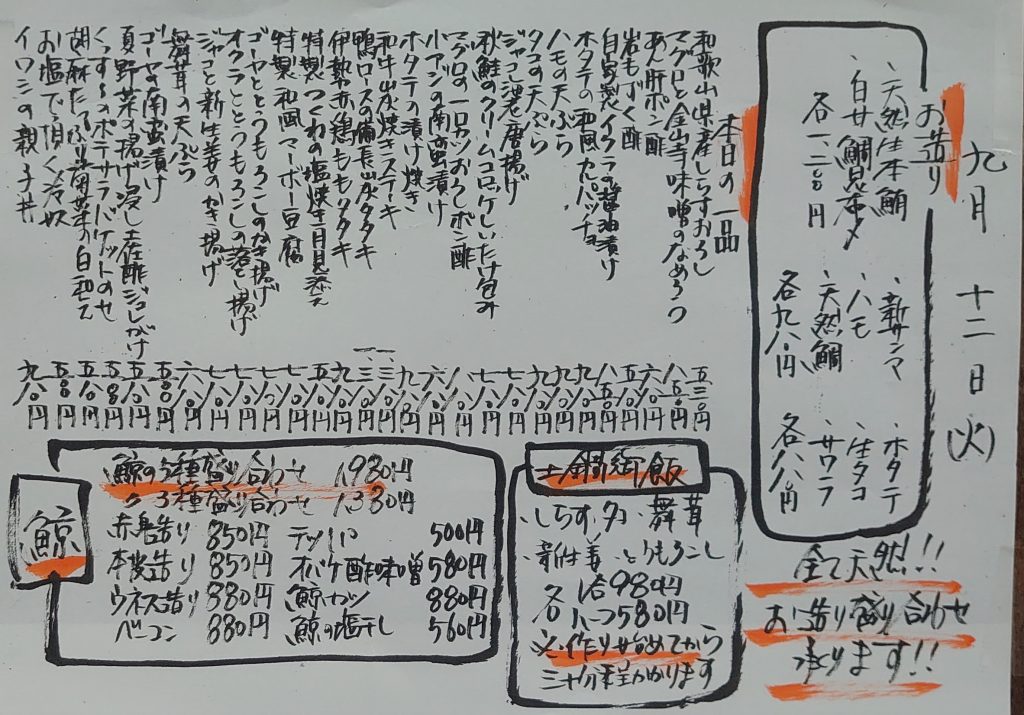 九月 十二日 (火)
お造り
、天然生本鮪
、白甘鯛昆布〆
各一、二〇〇円
、新サンマ
、ハモ
、天然鯛
各九八〇円
、ホタテ
、生タコ
、サワラ
各八八〇円
全て天然!!
お造り盛り合わせ
承ります!!
本日の一品
和歌山県産しらすおろし 五三〇円
マグロと金山寺味噌のなめろう 八八〇円
あん肝ポン酢 八五〇円
岩もずく酢 六八〇円
自家製イクラの醤油漬け
ホタテの和風カルパッチョ
ハモの天ぷら 九八〇円
タコの天ぷら 九八〇円
ジャコ沢老唐揚げ
秋鮭のクリームコロッケしいたけ包み
マグロの一口カツおろしポン酢
小アジの南蛮漬け 六八〇円
ホタテの漬け焼き 九八〇円
和牛炭焼きステーキ
鴨ロースの備長炭タタキ
伊勢赤鶏ももタタキ 九八〇円
特製つくねの塩焼き月見添え
特製和風マーボー豆腐
ゴーヤととうもろこしのかき揚げ
オクラととうもろこしの落とし揚げ
ジャコと新生姜のかき揚げ
舞茸の天ぷら 六八〇円
ゴーヤの南蛮漬け 五〇〇円
夏野菜の揚げ浸し土佐酢ジュレがけ
くっずしのポテサラバケットのせ
胡麻たっぷり青菜の白和え
お塩で頂く冷奴 五〇〇円
イワシの親子丼 九八〇円
土鍋御飯
、しらす、タコ、舞茸
、新生姜、とうもろこし
各 1合980円
ハーフ580円
※作り始めてから
三十分程かかります
鯨
鯨の5種盛り合わせ 1,980円
〃 3種盛り合わせ 1,380円
赤身造り 850円
本皮造り 850円
ウネス造り 880円
ベーコン 880円
テッピ 500円
オバケ酢味噌 580円
鯨カツ 880円
鯨の塩干し 560円